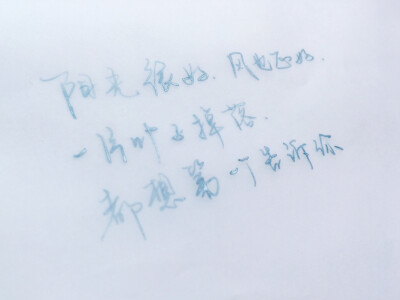 阳光很好.风也正好.
一片叶子掉落.
都想第一个告诉你